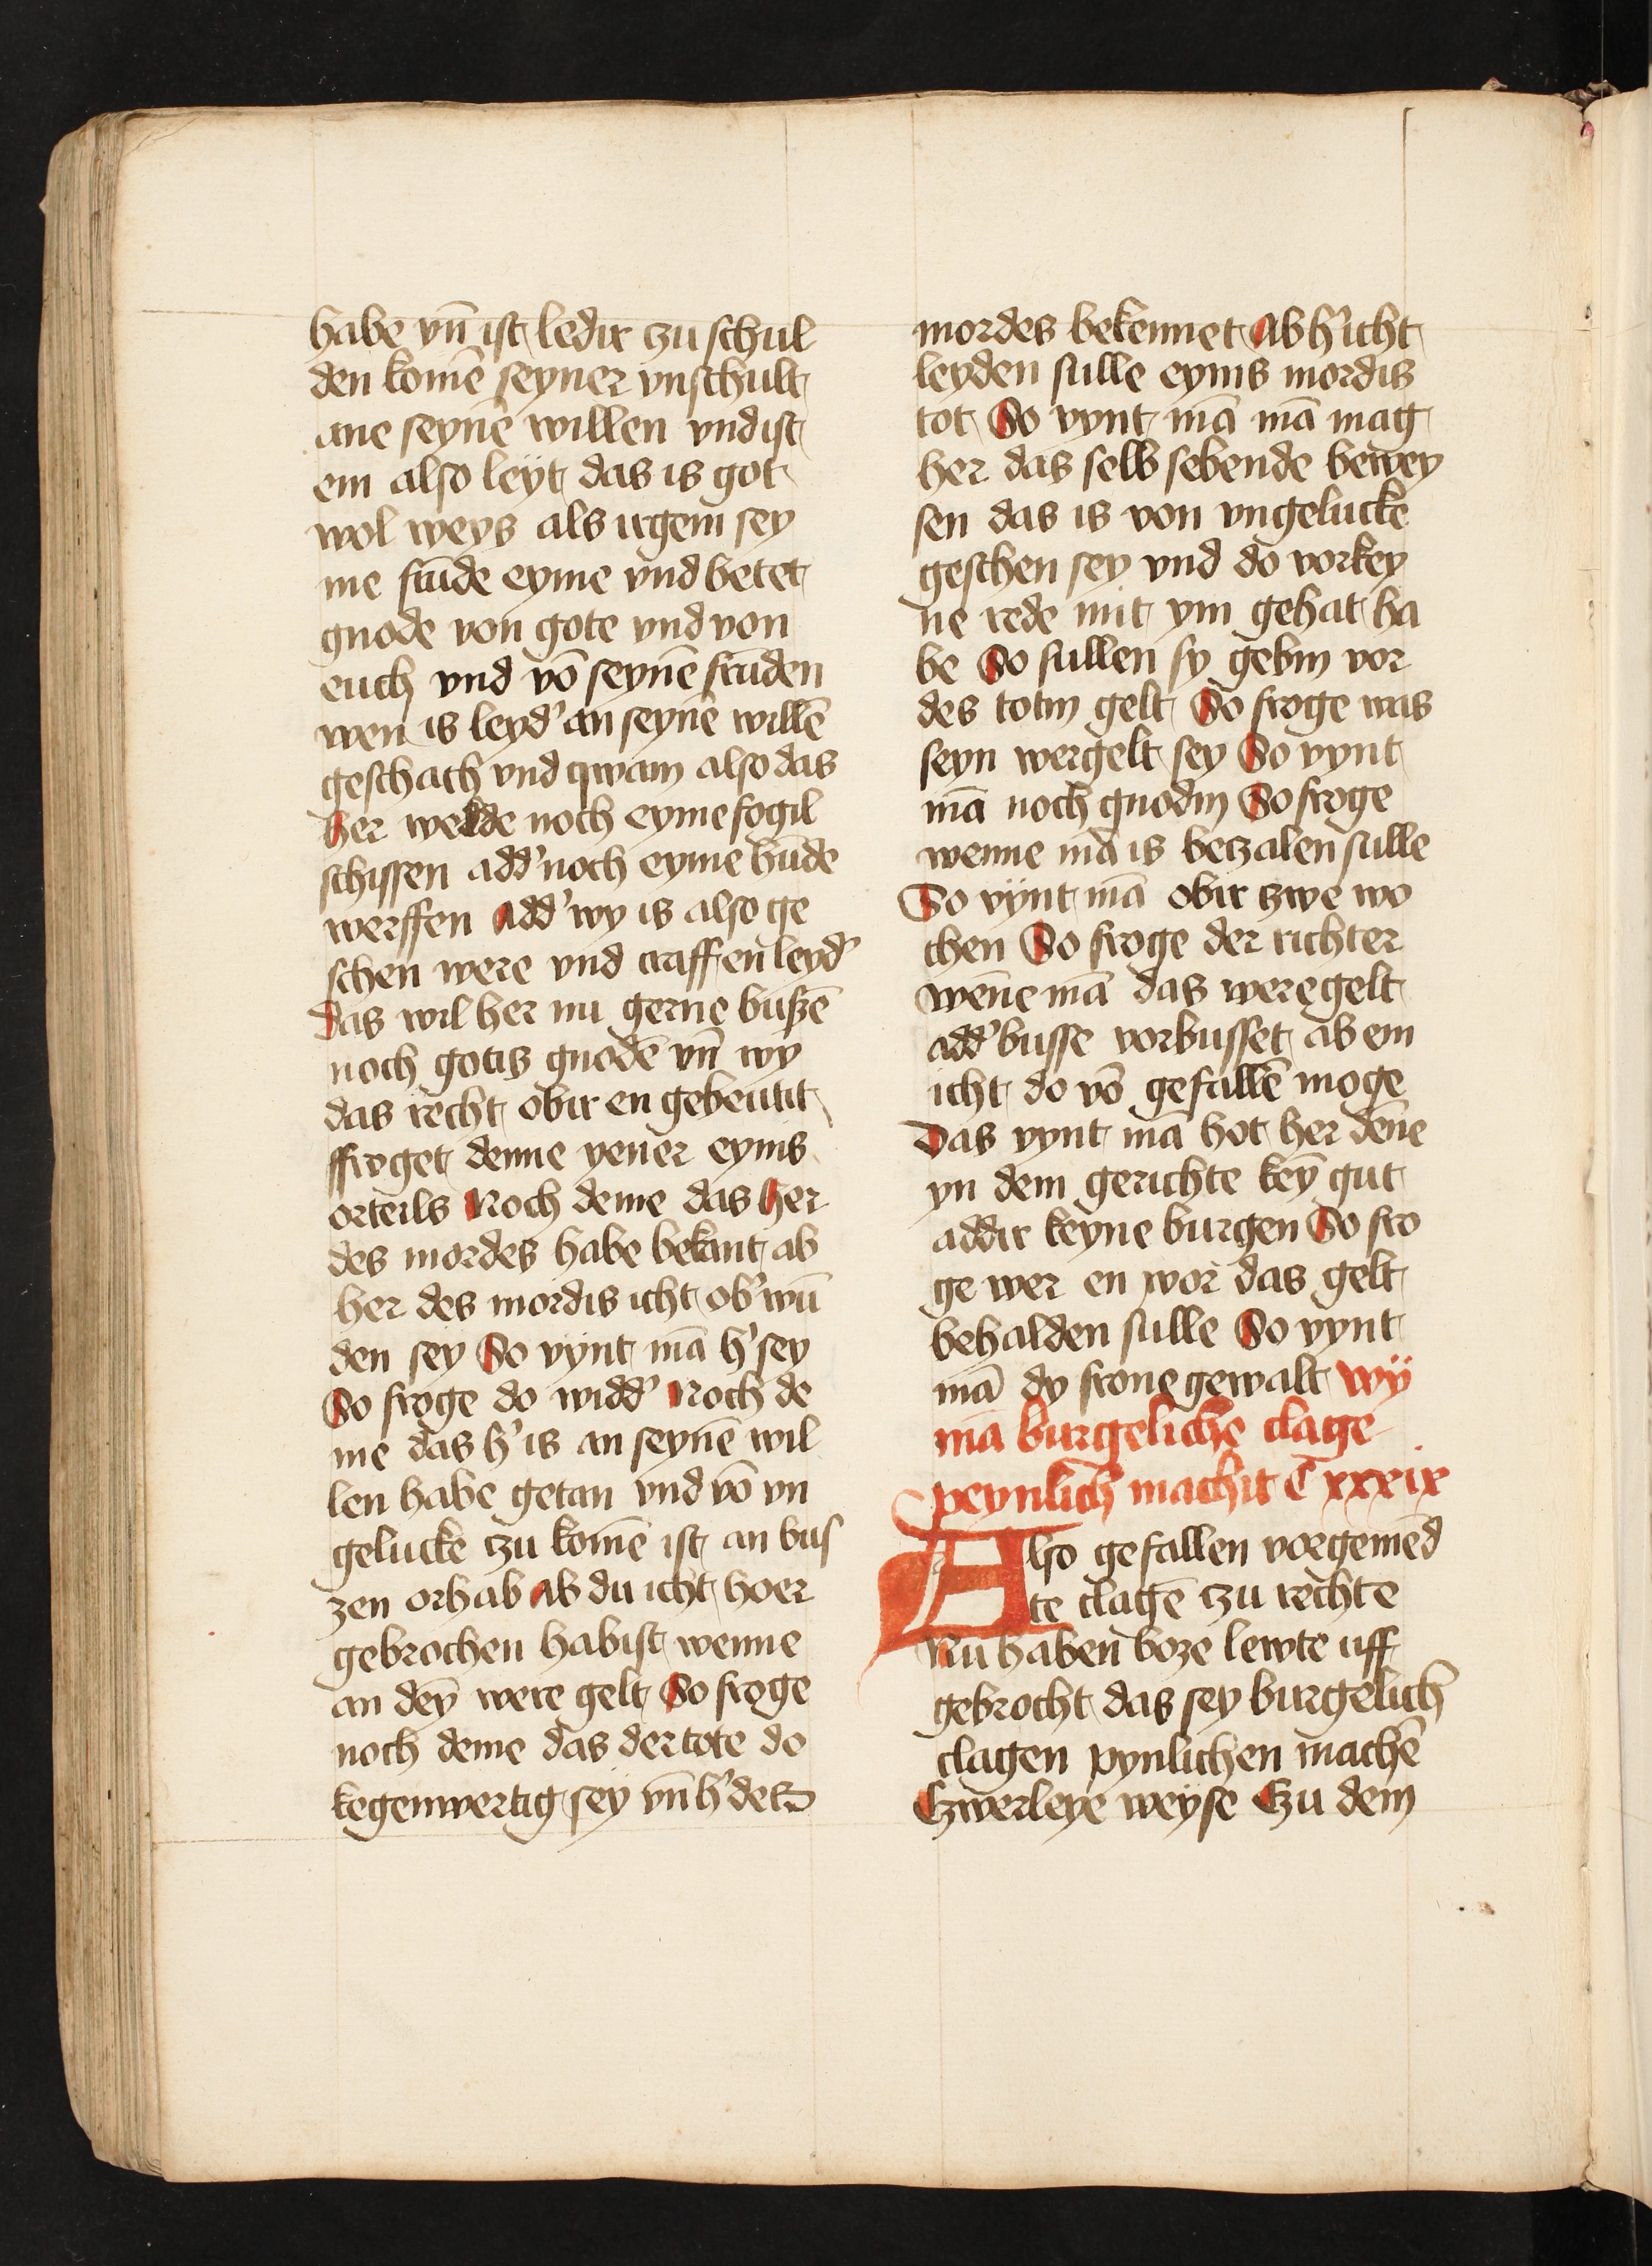 habe vn̄ ist ledir zu schul
den komē seyner vnschult
ane seynē willen vnd ist
em also leÿt das is got
wol weys als irgem sey
me frūde eyme vnd betet
gnode von gote vnd von
euch vnd vō seynē frūden
wen is leyd' an seynē willē
geschach vnd qwam also das
her welde noch eyme fogil
schissen add' noch eyme hūde
werffen Add' wy is also ge
schen were vnd traff en leyd'
Das wil her nu gerne bußē
noch gotis gnodē vn̄ wy
das recht obir en gebeutit
ffroget denne yener eyms
orteils Noch deme das her
des mordes habe bekant ab
her des mordis icht ob'wū
den sey So vÿnt mā h' sey
So froge do widd' Noch de
me das h' is an seynē wil
len habe getan vnd vō vn
gelucke zu komē ist an bus
zen orhab Ab du icht hoer
gebrochen habist wenne
an deȳ were gelt So froge
noch deme das der tote do
kegenwertig sey vn̄ h' des
mordes bekennet Ab h' icht
leyden sulle eyms mordis
tot So vynt mā mā mag
her das selb sebende bewey
sen das is von vngelucke
geschen sey vnd do vor key
ne rede mit ym gehat ha
be So sullen sy gebin vor
des totin gelt So froge was
seyn wergelt sey So vynt
mā noch gnodin So froge
wenne mā is betzalen sulle
So vÿnt mā obir tzwe wo
chen So froge der richter
wēne mā das weregelt
add' busse vorbusset ab em
icht do vō gefallē moge
Das vynt mā hot her dēne
yn dem gerichte keȳ gut
addir keyne burgen So fro
ge wer en wor das gelt
behalden sulle So vynt
mā dy frone gewalt Wÿ
mā burgeliche clage
peynlich machit C xxxix
Also gefallen vorgemēd
te clagē zu rechte
Nu haben boze lewte uff
gebrocht das sey burgelich
clagen pynlichen machē
Czwerleye weÿse Czu dem